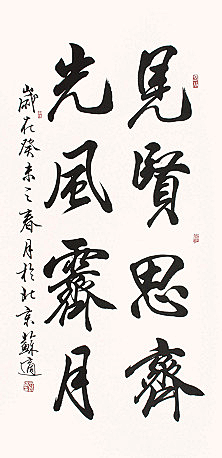 見賢思齊
光風霽月
歲在癸未之春月於北京蘇適